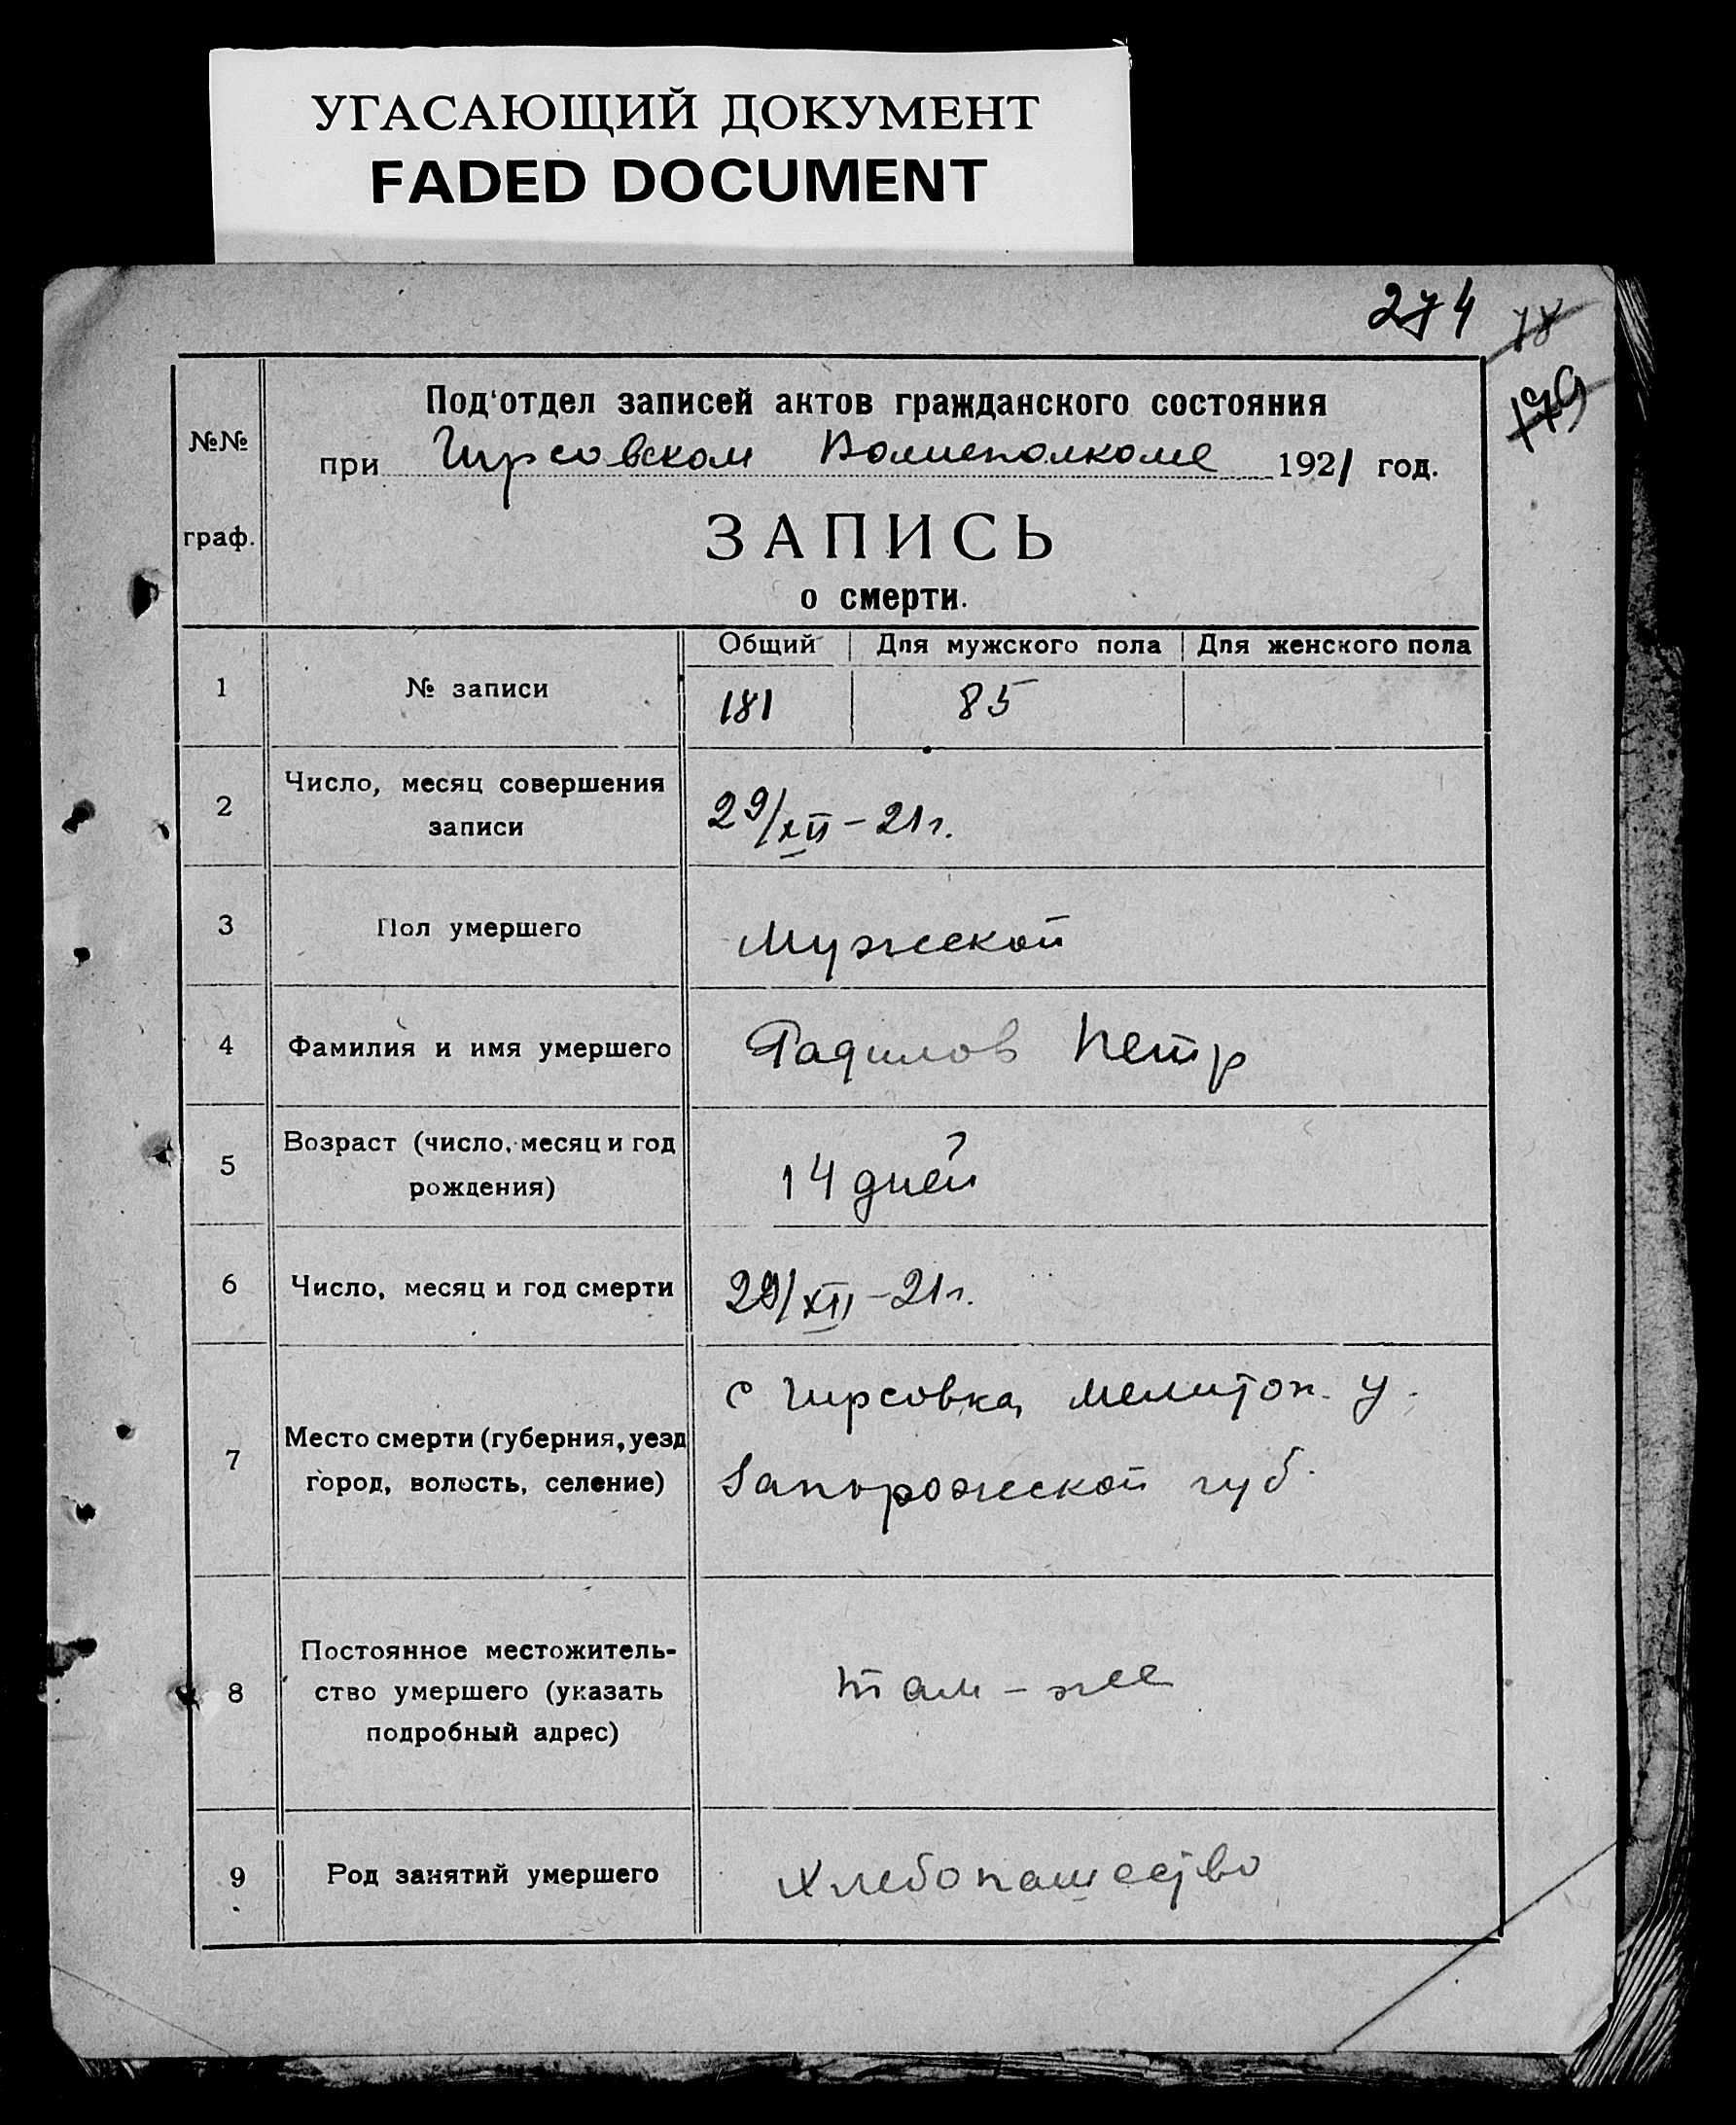 УГАСАЮЩИЙ ДОКУМЕНТ
FADED DOCUMENT
274
78
179
№№
граф.
Под'отдел записей актов гражданского состояния
при Гирсовском Волисполкоме 1921 год.
ЗАПИСЬ
о смерти.
Общий Для мужского пола Для женского пола
1 № записи 181 85
2 Число, месяц совершения
записи
29/XII – 21 г.
3 Пол умершего Мужской
4 Фамилия и имя умершего Радилов Петр
5 Возраст (число, месяц и год
рождения)
14 дней
6 Число, месяц и год смерти 29/XII – 21 г.
7 Место смерти (губерния, уезд
город, волость, селение)
с Гирсовка, Мелитоп. у.
Запорожской губ.
8 Постоянное местожитель-
ство умершего (указать
подробный адрес)
Там – же
9 Род занятий умершего Хлебопашество